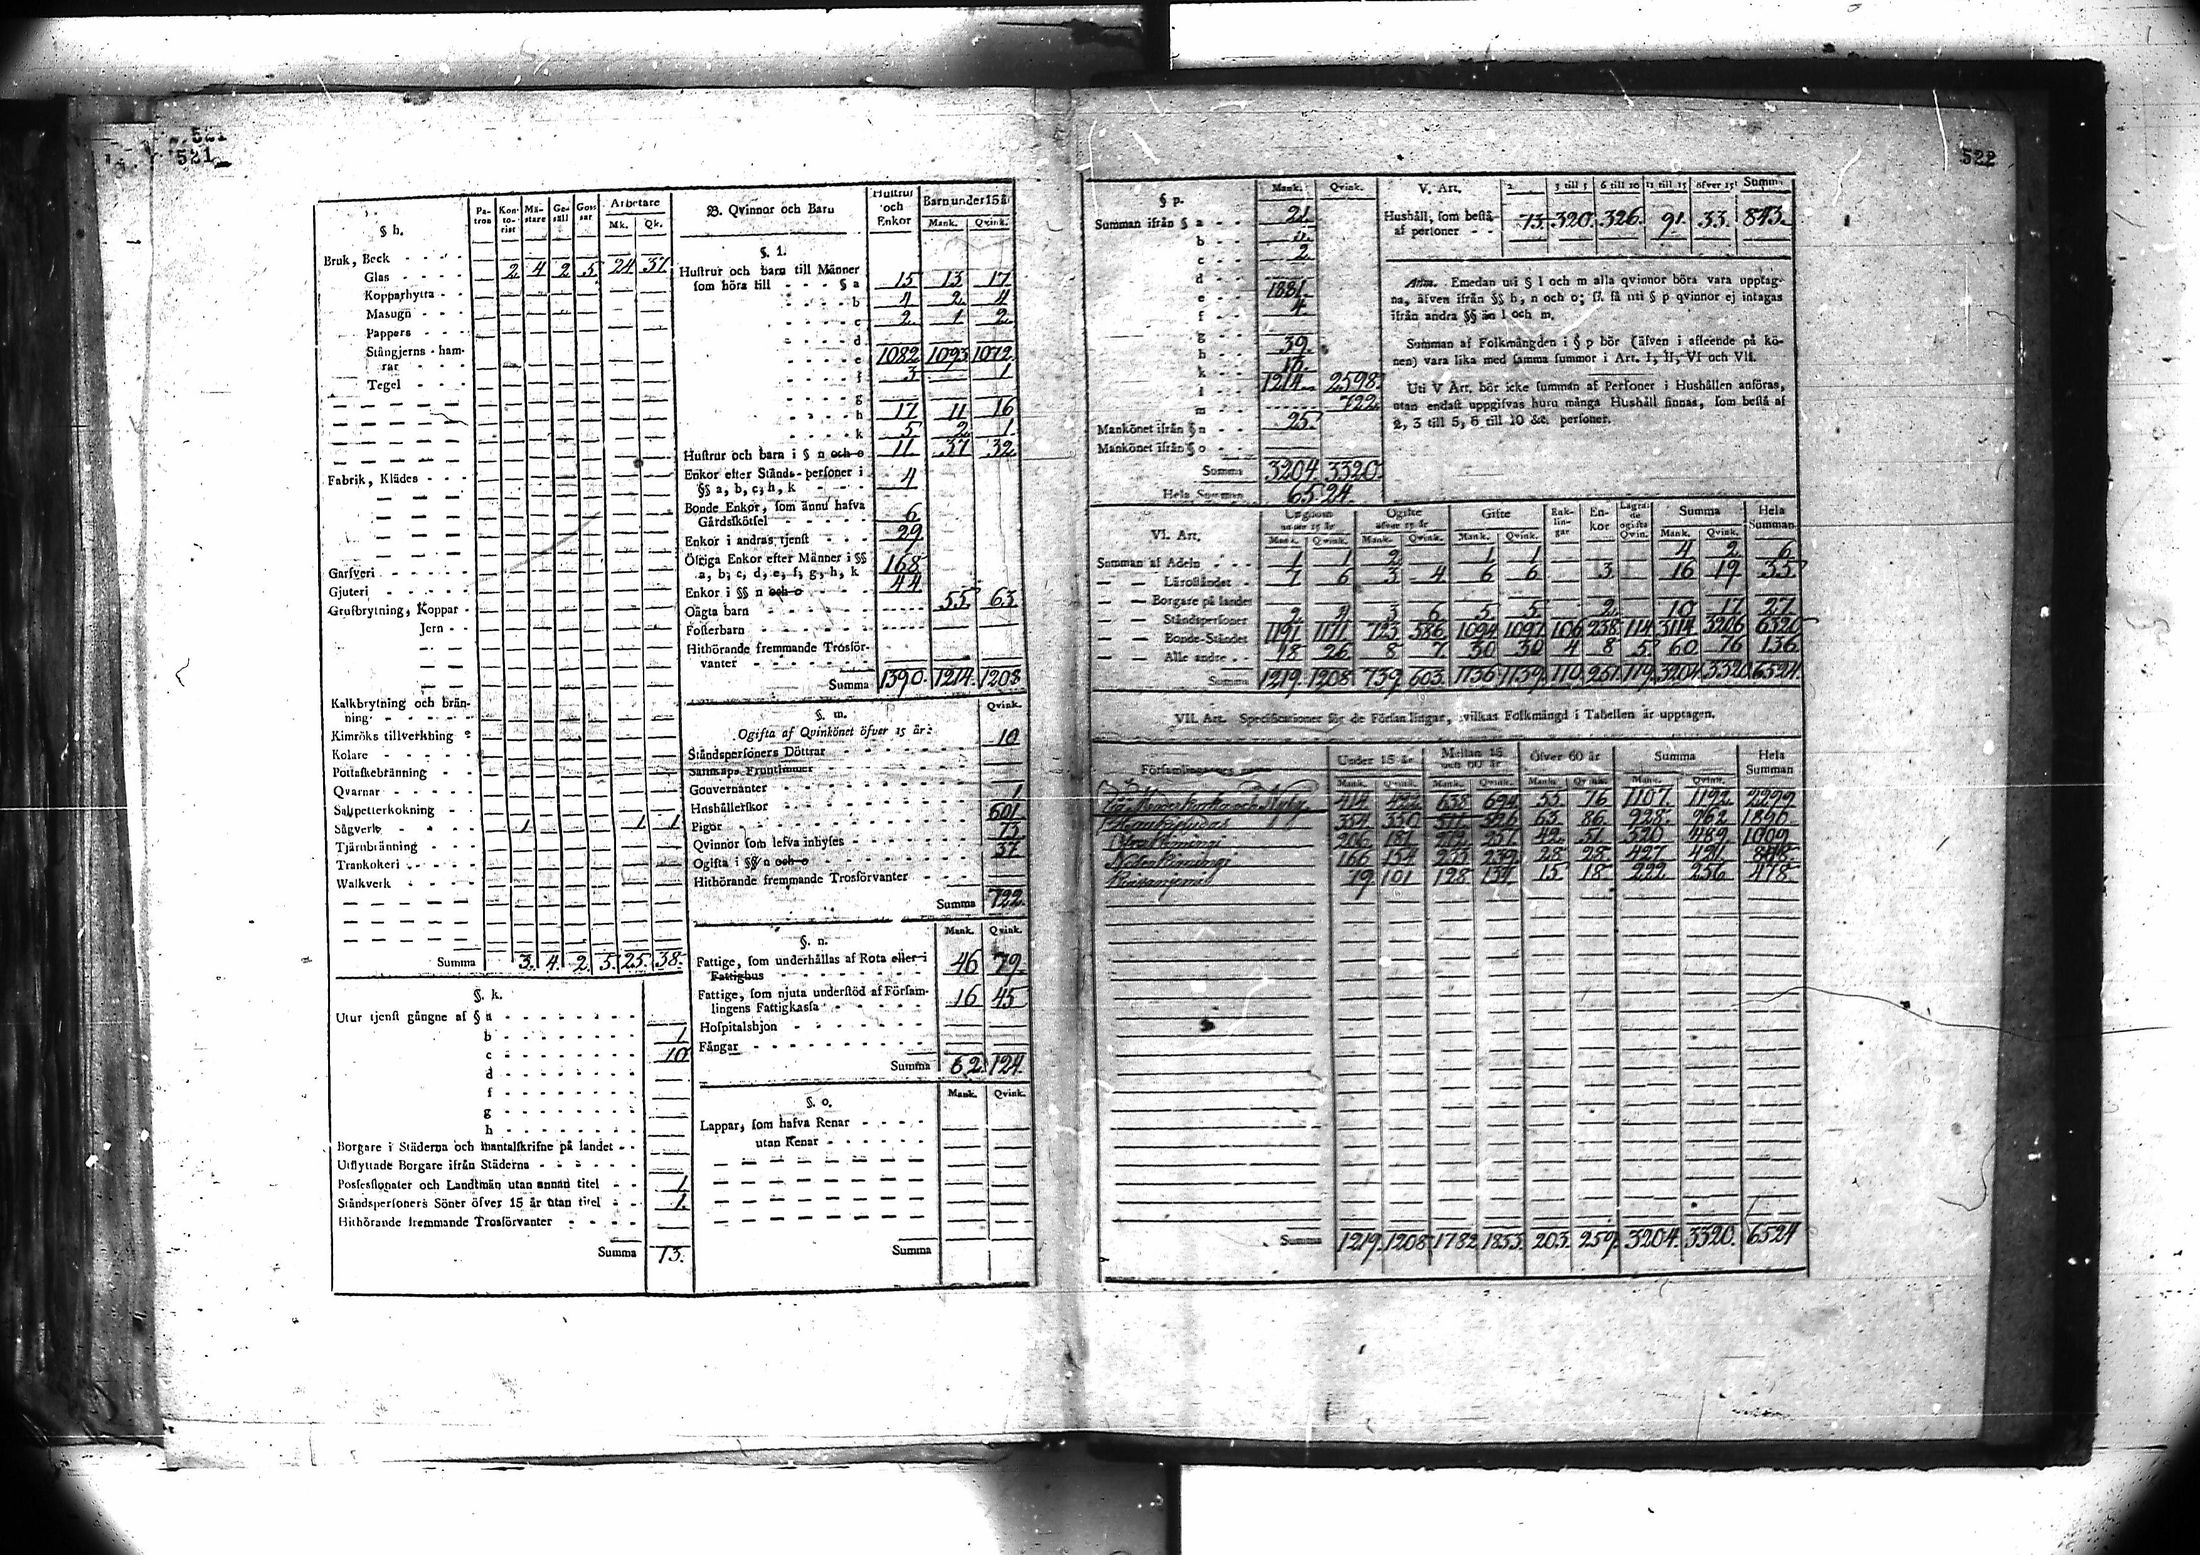 521
521
522
§ h.
Pa-tron Kon-to-rist Mä-stare Ge-säll Gos-sar Arbetare
Mk. Qk.
Bruk, Beck - - - -
Glas - - - - 2 4 2 5 24 37
Kopparhytta - -
Masugn - - -
Pappers - - -
Stångjerns-ham-
rar - - -
Tegel - - -
Fabrik, Klädes - - -
Garfveri - - - - -
Gjuteri - - - - -
Grufbrytning, Koppar -
Jern - -
Kalkbrytning och brän-
ning - - - - -
Kimröks tillverkning
Kolare - - - - -
Pottaskebränning - -
Qvarnar - - - -
Salpetterkokning - -
Sågverk - - - - 1 1 1
Tjärnbränning - - -
Trankokeri - - - -
Walkverk - - - -
Summa 3. 4. 2. 5. 25. 38.
§. k.
Utur tjenst gångne af § a - - - - - - -
b - - - - - - - 1
c - - - - - - - 10
d - - - - - - -
f - - - - - - -
g - - - - - - -
h - - - - - - -
Borgare i Städerna och mantalskrifne på landet - -
Utflyttade Borgare ifrån Städerna - - - - -
Possessionater och Landtmän utan annan titel - - 1
Ståndspersoners Söner öfver 15 år utan titel - - 1.
Hithörande fremmande Trosförvanter - - - -
Summa 13.
B. Qvinnor och Barn
Hustrur och Enkor Barn under 15 år
Mank. Qvink.
§. l.
Hustrur och barn till Männer
som höra till - - - § a 15 13 17
- - - - b 4 2 4
- - - - c 2. 1 2.
- - - - d
- - - - e 1082 1093 1072
- - - - f 3. 1
- - - - g
- - - - h 17 11 16
- - - - k 5 2 1
Hustrur och barn i § n och o 11. 37 32
Enkor efter Stånds-personer i
§§ a, b, c, h, k - - - 4
Bonde Enkor, som ännu hafva
Gårdsskötsel - - - - - 6
Enkor i andras tjenst - - - 29
Öfriga Enkor efter Männer i §§
a, b, c, d, e, f, g, h, k 168
Enkor i §§ n och o - - - - 44
Oägta barn - - - - - - 55. 63.
Fosterbarn - - - - - -
Hithörande fremmande Trosför-
vanter - - - - - -
Summa 1390. 1214. 1208
§. m. Qvink.
Ogifta af Qvinkönet öfver 15 år:
Ståndspersoners Döttrar - - - - - - 10
Sällskaps Fruntimmer
Gouvernanter - - - - - - -
Hushållerskor - - - - - - - 1
Pigor - - - - - - - 601
Qvinnor som lefva inhyses - - - - - 73
Ogifta i §§ n och o - - - - - - 37
Hithörande fremmande Trosförvanter - - -
Summa 722.
§. n. Mank. Qvink.
Fattige, som underhållas af Rota eller i
Fattighus - - - - - - - 46 79
Fattige, som njuta understöd af Försam-
lingens Fattigkassa - - - - - - 16 45
Hospitalshjon - - - - - - -
Fångar - - - - - - - -
Summa 62. 124.
§. o. Mank. Qvink.
Lappar, som hafva Renar - - - -
utan Renar - - - - -
Summa
§ p. Mank. Qvink.
Summan ifrån § a - - 21.
b - -
c - - 2
d - -
e - - 1881.
f - - 4.
g - -
h - - 39.
k - -
l - - 1214 2598.
m - - 722
Mankönet ifrån § n - - 25.
Mankönet ifrån § o - -
Summa 3204. 3320.
Hela Summan 6524.
V. Art. 2 3 till 5 6 till 10 11 till 15 öfver 15 Summa
Hushåll, som bestå
af personer - - 73. 320. 326. 91. 33. 843.
Anm. Emedan uti § l och m alla qvinnor böra vara upptag-
na, äfven ifrån §§ h, n och o; så uti § p qvinnor ej intagas
ifrån andra §§ än l och m.
Summan af Folkmängden i § p bör (äfven i afseende på kö-
nen) vara lika med samma summor i Art. I, II, VI och VII.
Uti V Art. bör icke summan af Personer i Hushållen anföras,
utan endast uppgifvas huru många Hushåll finnas, som bestå af
2, 3 till 5, 6 till 10 &c. personer.
VI. Art. Ungdom under 15 år Ogifte öfver 15 år Gifte Enk-lin-gar En-kor Lägra-de ogifta Qvin. Summa Hela Summan
Mank. Qvink. Mank. Qvink. Mank. Qvink. Mank. Qvink.
Summan af Adeln - - - 1 1 2 1 1 4 2 6
— — Läroståndet - 7 6 3 4 6 6 3 16 19 35
— — Borgare på landet
— — Ståndspersoner 2 4 3 6 5 5 2 10 17 27
— — Bonde-Ståndet 1191 1171 723 586 1094 1097 106 238 114 3114 3206 6320
— — Alle andre - - 18 26 8 7 30 30 4 8 5 60 76 136
Summa 1219. 1208 739. 603. 1136 1139. 110. 251. 119. 3204. 3320. 6524.
VII. Art. Specificationer för de Församlingar, hvilkas Folkmängd i Tabellen är upptagen.
Församlingarnes namn. Under 15 år Mellan 15 och 60 år Öfver 60 år Summa Hela Summan
Mank. Qvink. Mank. Qvink. Mank. Qvink. Mank. Qvink.
414 422 638 694 55 76 1107. 1192. 2299
354 350 511 526 63 86 928. 962 1890
206 181 272 257 42 51 520 489 1009
166 154 233 239 28 28 427 421 848
19 101 128 137 15 18 222 256 478
Summa 1219. 1208 1782 1853. 203. 259. 3204. 3320. 6524